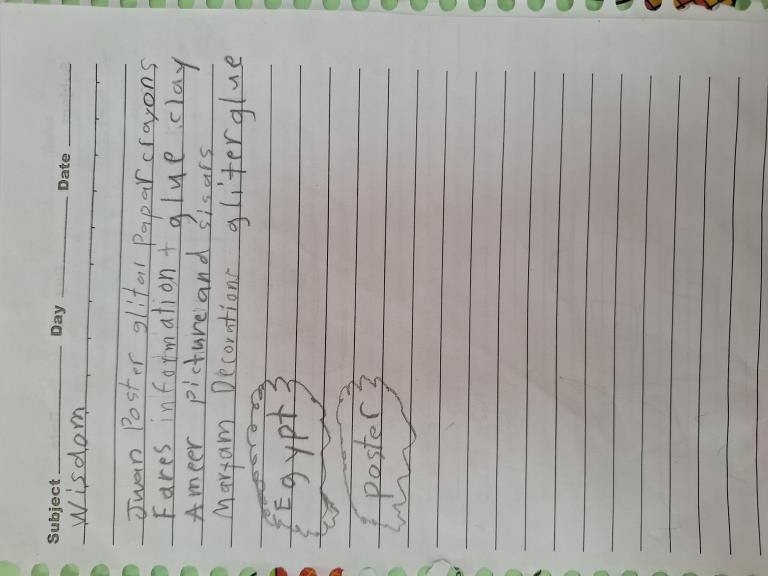 Subject Day Date
Wisdom
Jwan Poster glital Papar crayons
Fares information + glue clay
Ameer picture and sisars
Maryam Decorations gliter glue
Egypt
poster